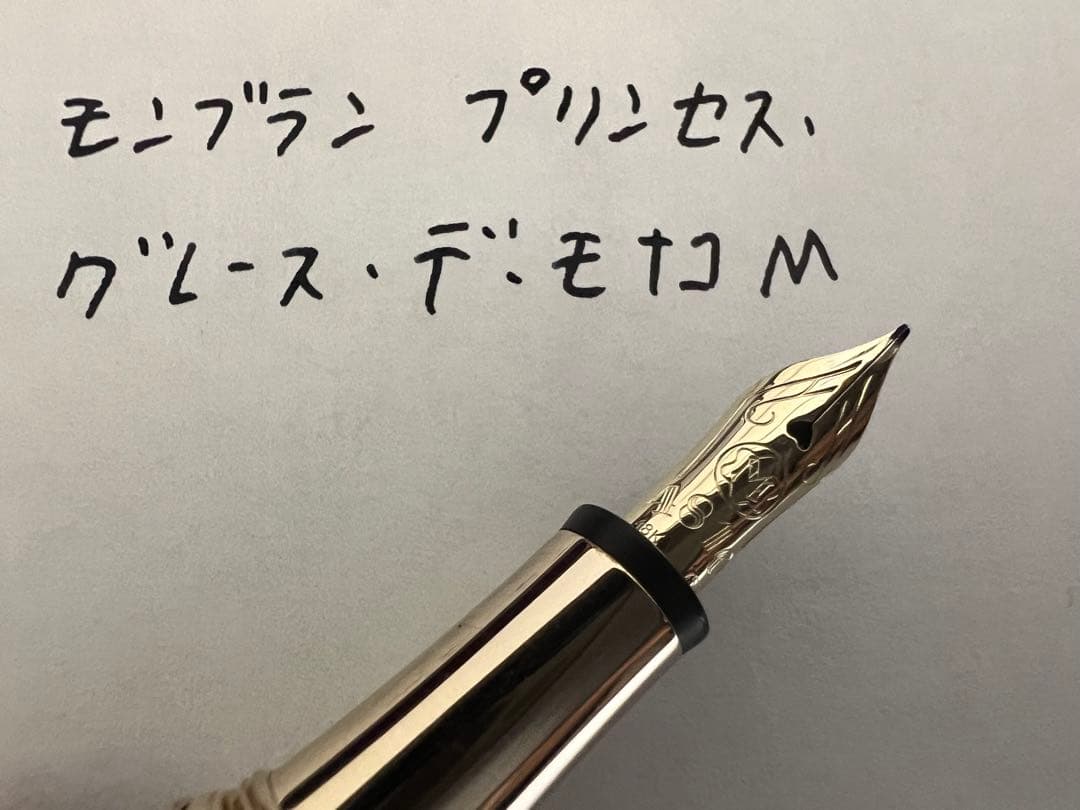 モンブラン プリンセス・
グレース・デ・モナコ M
18K